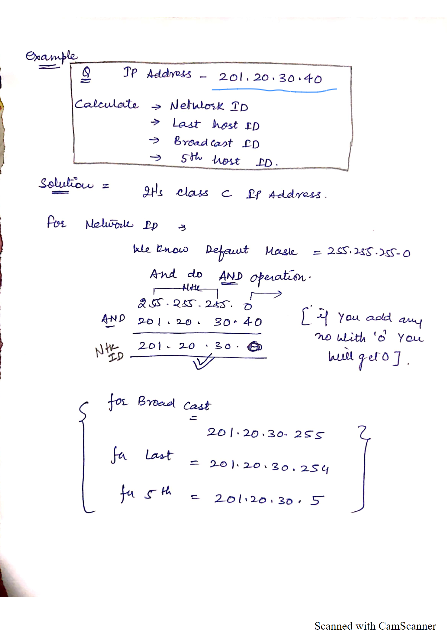 Example
Q IP Address - 201.20.30.40
Calculate → Network ID
→ Last host ID
→ Broadcast ID
→ 5th host ID.
Solution = It's class C IP Address.
for Network ID →
We know Defaut Mask = 255.255.255.0
And do AND operation.
Ntk
255.255.255.0
AND 201.20.30.40
Ntk ID 201.20.30.0
[if you add any no with '0' you will get 0].
for Broad cast
= 201.20.30.255
for Last = 201.20.30.254
for 5th = 201.20.30.5
Scanned with CamScanner